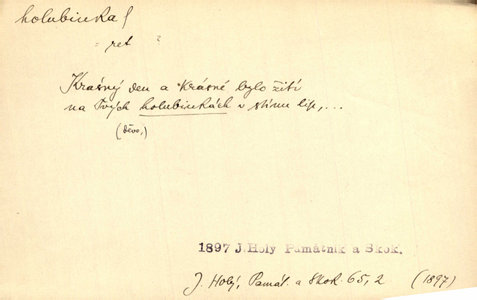 holubinka f
= ret ?
Krásný den a krásné bylo žití
na Tvých holubinkách v stínu lip, ...
(děvo,)
1897 J.Holy Památnik a Skok.
J. Holý, Památ. a Skok 65, 2 (1897)